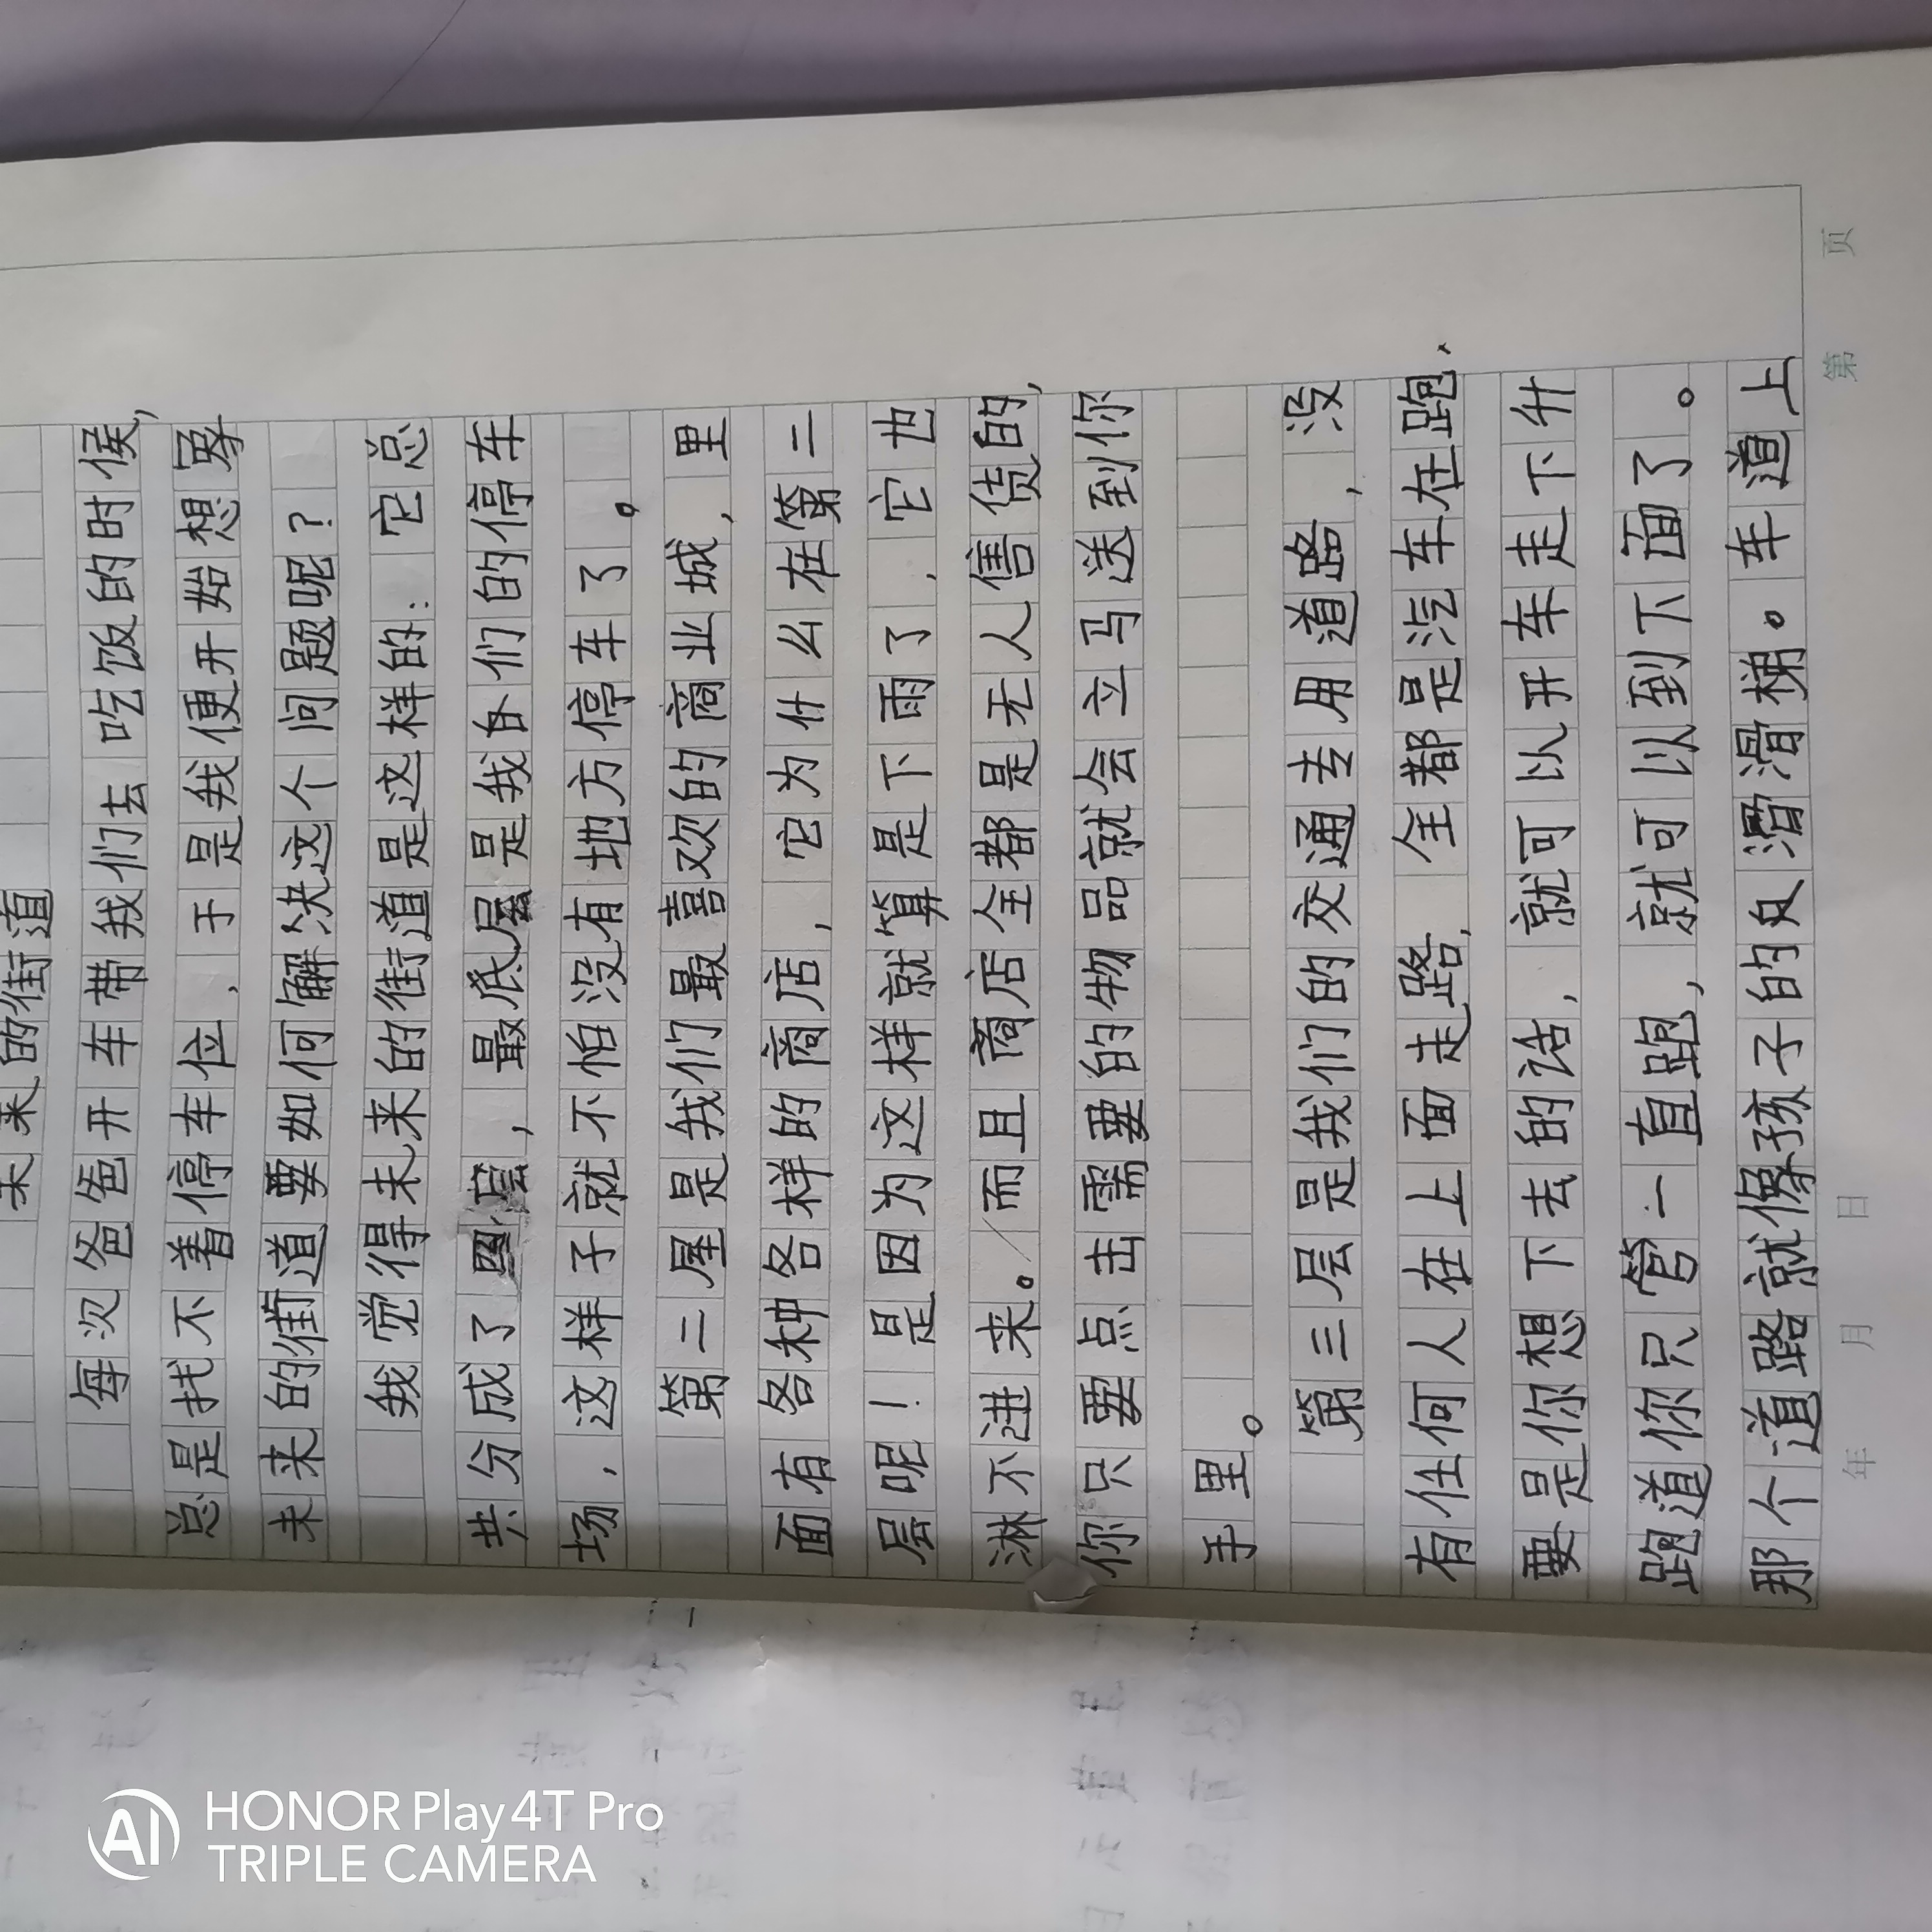 未来的街道
每次爸爸开车带我们去吃饭的时侯，
总是找不着停车位，于是我便开始想象
未来的街道要如何解决这个问题呢？
我觉得未来的街道是这样的：它总
共分成了四层，最底屋是我们的停车
场，这样子就不怕没有地方停车了。
第二屋是我们最喜欢的商业城，里
面有各种各样的商店，它为什么在第二
层呢！是因为这样就算是下雨了，它也
淋不进来。而且商店全都是无人售货的，
你只要点击需要的物品就会立马送到你
手里。
第三层是我们的交通专用道路，没
有任何人在上面走路，全都是汽车在跑，
要是你想下去的话，就可以开车走下升
跑道你只管一直跑，就可以到下面了。
那个道路就像孩子的滑滑梯。车道上
第 页
年 月 日
HONOR Play4T Pro
TRIPLE CAMERA
AI